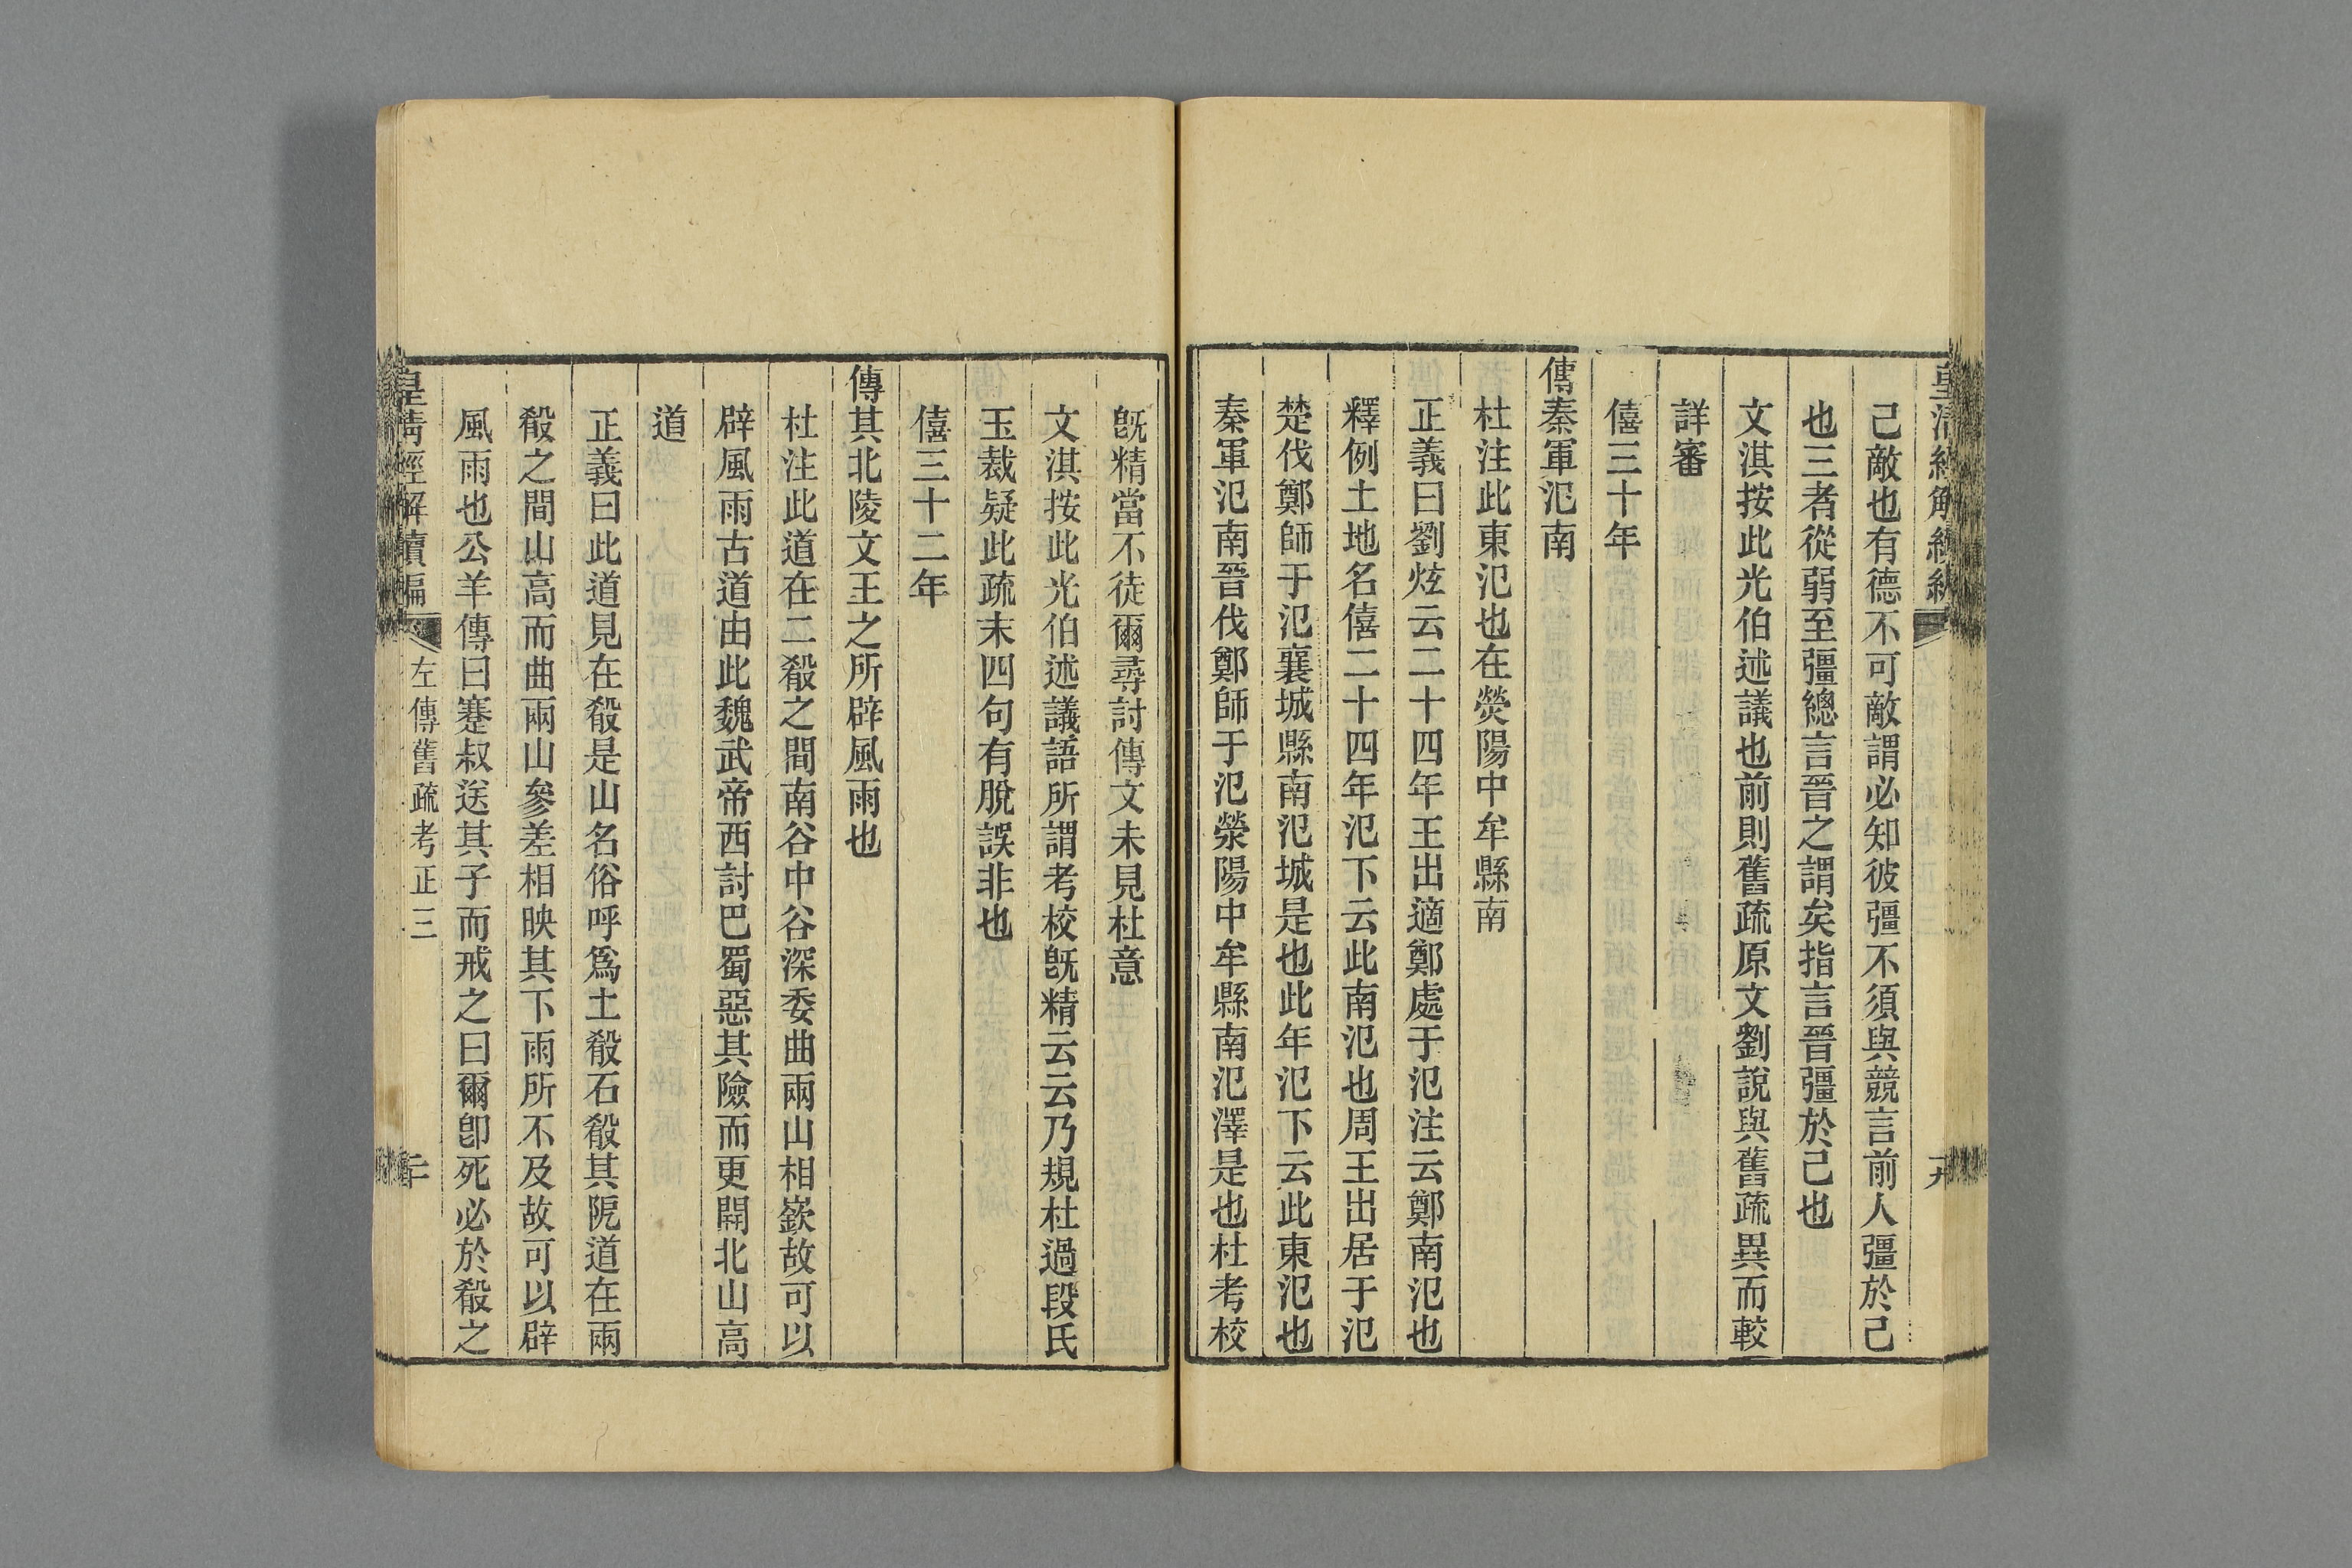 己敵也有德不可敵謂必知彼彊不須與競言前人彊於己
也三者從弱至彊總言晉之謂矣指言晉彊於己也
文淇按此光伯述議也前則舊疏原文劉說與舊疏異而較
詳審
僖三十年
傳秦軍氾南
杜注此東氾也在熒陽中牟縣南
正義曰劉炫云二十四年王出適鄭處于氾注云鄭南氾也
釋例土地名僖二十四年氾下云此南氾也周王出居于氾
楚伐鄭師于氾襄城縣南氾城是也此年氾下云此東氾也
秦軍氾南晉伐鄭師于氾滎陽中牟縣南氾澤是也杜考校
旣精當不徒爾尋討傳文未見杜意
文淇按此光伯述議語所謂考校旣精云云乃規杜過段氏
玉裁疑此疏末四句有脫誤非也
僖三十二年
傳其北陵文王之所辟風雨也
杜注此道在二殽之間南谷中谷深委曲兩山相嶔故可以
辟風雨古道由此魏武帝西討巴蜀惡其險而更開北山高
道
正義曰此道見在殽是山名俗呼爲土殽石殽其阨道在兩
殽之間山高而曲兩山參差相映其下雨所不及故可以辟
風雨也公羊傳曰蹇叔送其子而戒之曰爾卽死必於殽之
皇清經解續編
左傳舊疏考正三
二十